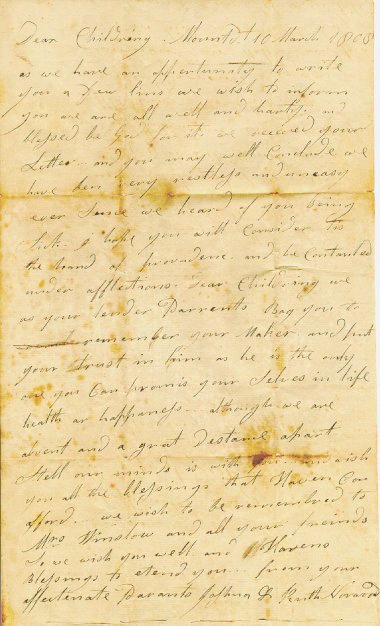 Dear Childring Mount 10 March 1808
as we have an oppertunity to write
you a few lins we wish to inform
you we are all well and harty and
blessed be God for it we receved your
Letter and you may well Conclude we
have ben very restless and uneasy
ever Since we heard of you being
Sick I hope you will Consider its
the hand of provadence and be Contanted
under afflections Dear Childring we
as your tender Parrents Bag you to
remember your Maker and put
your trust in him as he is the only
one you Can promis your Selves in life
health or happiness although we are
absent and a great Destance apart
Still our minds is with you we wish
you all the blessings that Haven Can
afford we wish to be remembred to
Mrs Winslow and all your friends
So we wish you well and Havens
Blessings to atend you from your
affectenate Parants Joshua & Ruth